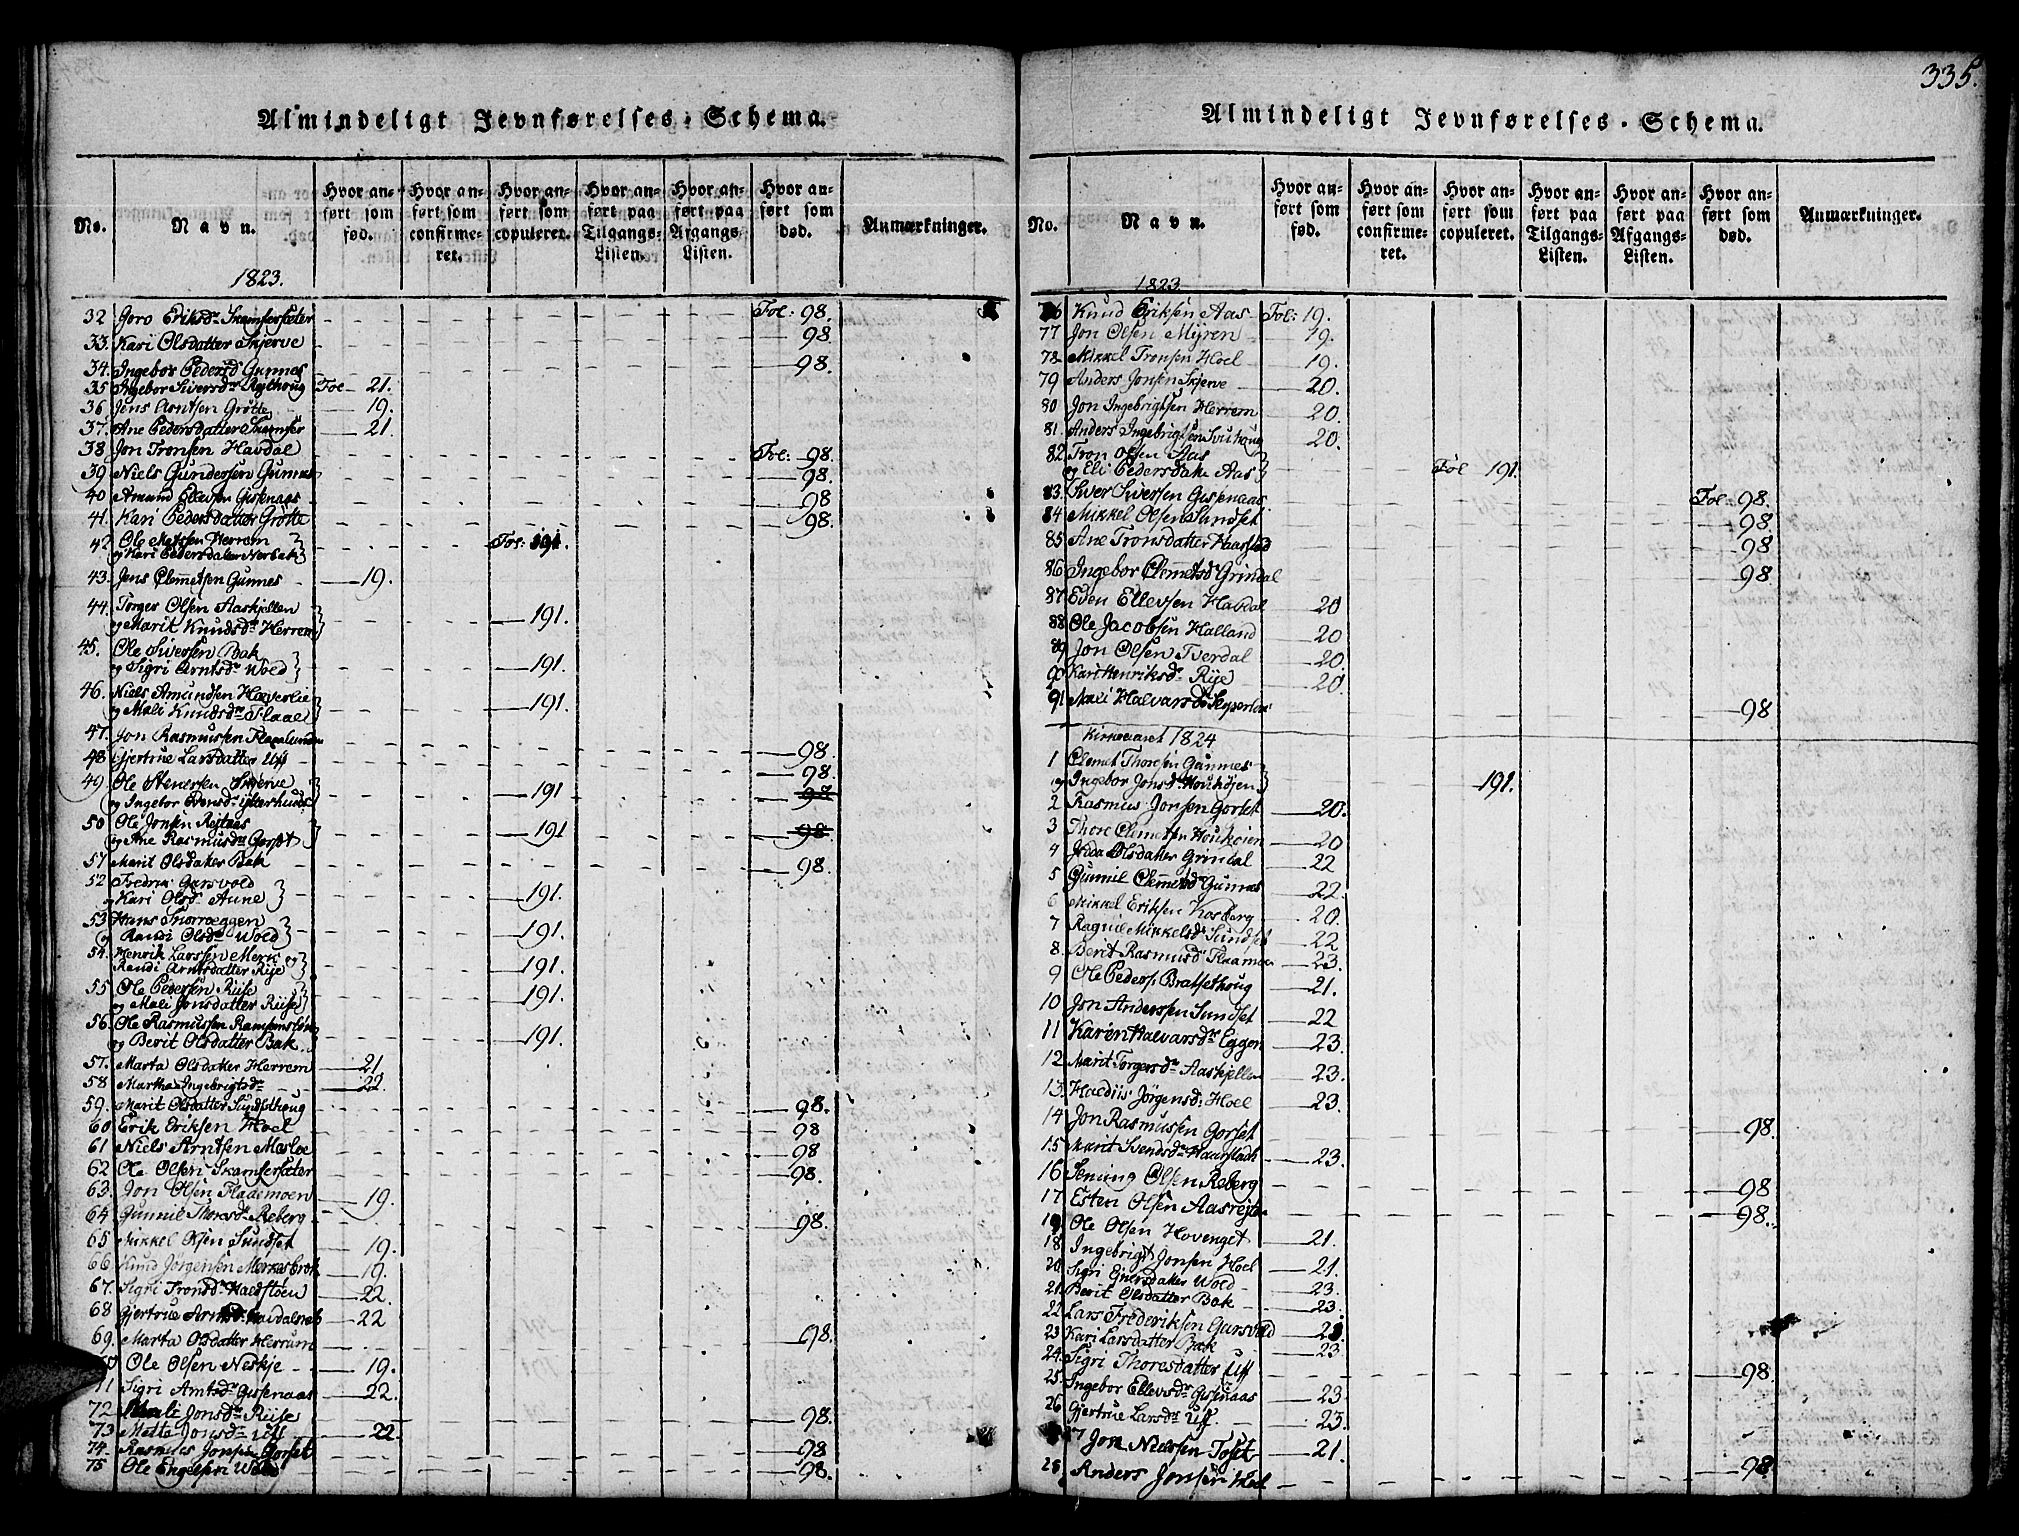 335.
Almindeligt Jevnførelses-Schema.
No.
Navn.
Hvor anført som fød.
Hvor anført som confirmeret.
Hvor anført som copuleret.
Hvor anført paa Tilgangs-Listen.
Hvor anført paa Afgangs-Listen.
Hvor anført som død.
Anmærkninger.
1823.
32 Goro Eriksdr Skamfersæter Fol: 98.
33. Kari Olsdatter Skjerve 98
34. Ingebor Pedersd Gunnes 98.
35 Ingebor Siversdr Fol 21.
36 Jens Arntsen Grötte 19.
37. Ane Pedersdatter 21.
38. Jon Tronsen Havdal Fol: 98.
39 Niels Gundersen Gunnes 98.
40 Amund Ellevsen Gisenaas 98
41. Kari Pedersdatter Grötte 98.
42 Ole Matssen Herrem Fol: 191.
og Kari Pedersdatter
43. Jens Clemetsen Gunnes 19.
44. Torger Olsen Aaskjellen
og Marit Knudsdr Herrem 191.
45. Ole Siversen Bak
og Sigri Arntsdr Wold 191.
46. Niels Amundsen Hæverlie
og Mali Knudsdr Flaae 191.
47. Jon Rasmussen 98.
48 Gjertrue Larsdatter Uff 98.
49 Ole Stenersen Skjerve 191 98
og Ingebor
50 Ole Jonsen Rejtaas 191 98
og Ane Rasmusdr Gorset
51 Marit Olsdatter Bak 98.
52 Fredrik Garsvold
og Kari Olsdr Aune 191.
53 Hans Snorroeggen
og Randi Olsdr Wold 191.
54. Henrik Larssen Merk og
Randi Arntsdatter Rije 191.
55 Ole Pedersen Riise
og Mali Jonsdatter Riise 191.
56. Ole Rasmussen
og Berit Olsdatter Bak. 191.
57. Marta Olsdatter Herrem 21
58 Martha Ingebrigtsdr 22.
59. Marit Olsdatter Sundsethoug 98.
60 Erik Eriksen Hoel 98
61 Niels Arntsen Mosloe 98
62 Ole Olsen Skamfersæter 98.
63. Jon Olsen Flademoen 19.
64. Gunnil Thoresdr Reberg 98.
65 Mikkel Olsen Sundset 19.
66 Knud Jörgensen 19.
67. Sigri Tronsdr 22.
68 Gjertrue 22
69. Marta Olsdatter Herrum 98.
Ole Olsen Neskje 19.
71 Sigri Arntsdr Gisenaas 22.
72 Mali Jonsdr Riise 98.
73 Mette Jonsdr Uff 22.
74. Rasmus Jonsen Gorset 98
75 Ole Engelsen Wold 98.
Almindeligt Jevnførelses-Schema.
No.
Navn.
Hvor anført som fød.
Hvor anført som confirmeret.
Hvor anført som copuleret.
Hvor anført paa Tilgangs-Listen.
Hvor anført paa Afgangs-Listen.
Hvor anført som død.
Anmærkninger.
1823.
76 Knud Eriksen Aas Fol: 19.
77 Jon Olsen Myren 19.
78 Mikkel Tronsen Hoel 19.
79 Anders Jonsen Skjerve 20.
80 Jon Ingebrigtsen Herrem 20.
81. Anders Ingebrigtsen 20.
82 Tron Olsen Aas
og Eli Pedersdatr Aas Fol 191.
83. Siver Siversen Gisenaas Fol: 98.
84 Mikkel Olsen Sundset 98.
85 Ane Tronsdatter 98
86 Ingebor Clemetsd Grindal 98
87. Even Ellevsen Havdal 20
88 Ole Jacobsen Halland 20
89 Jon Olsen Tverdal 20.
90 Kari Henriksdr Rije 20.
91 Mali Halvarsdr 98
Kirkeaaret 1824
1 Clemet Thoresen Gunnes
og Ingebor Jonsdr 191.
2 Rasmus Jonsen Gorset 20.
3 Thore Clemetsen 20
4 Olsdatter Grindal 22
5 Gunnil Clemetsd Gunnes 22.
6 Mikkel Eriksen Kosberg 20.
7 Ragnil Mikkelsdr Sundset 22
8. Berit Rasmusd 23.
9 Ole Peders: Bratsethoug 21.
10 Jon Anderssen Sundset 22
11 Karen Halvarsdr Eggen 23.
12 Marit Torgersdr Aaskjellen 23.
13. Jörgensd: Hoel 23.
14 Jon Rasmussen Gorset 98.
15. Marit Svendsdr 23.
16 Olsen Reberg 98
17 Esten Olsen 98.
19. Ole Olsen Hovenget 21.
18 Ingebrigt Jonsen Hoel 21.
20. Sigri Wold 23.
21. Berit Olsdatter Bak 23.
22 Lars Frederiksen Garsvold
23 Kari Larsdatter Bak 23
24. Sigri Thoresdatter Uff 98.
25. Ingebor Ellevsdr Gisenaas 23
26 Gjertrue Larsdr Uff 23.
Jon Nielssen Toset 21.
28 Anders Jonsen Hoel 98